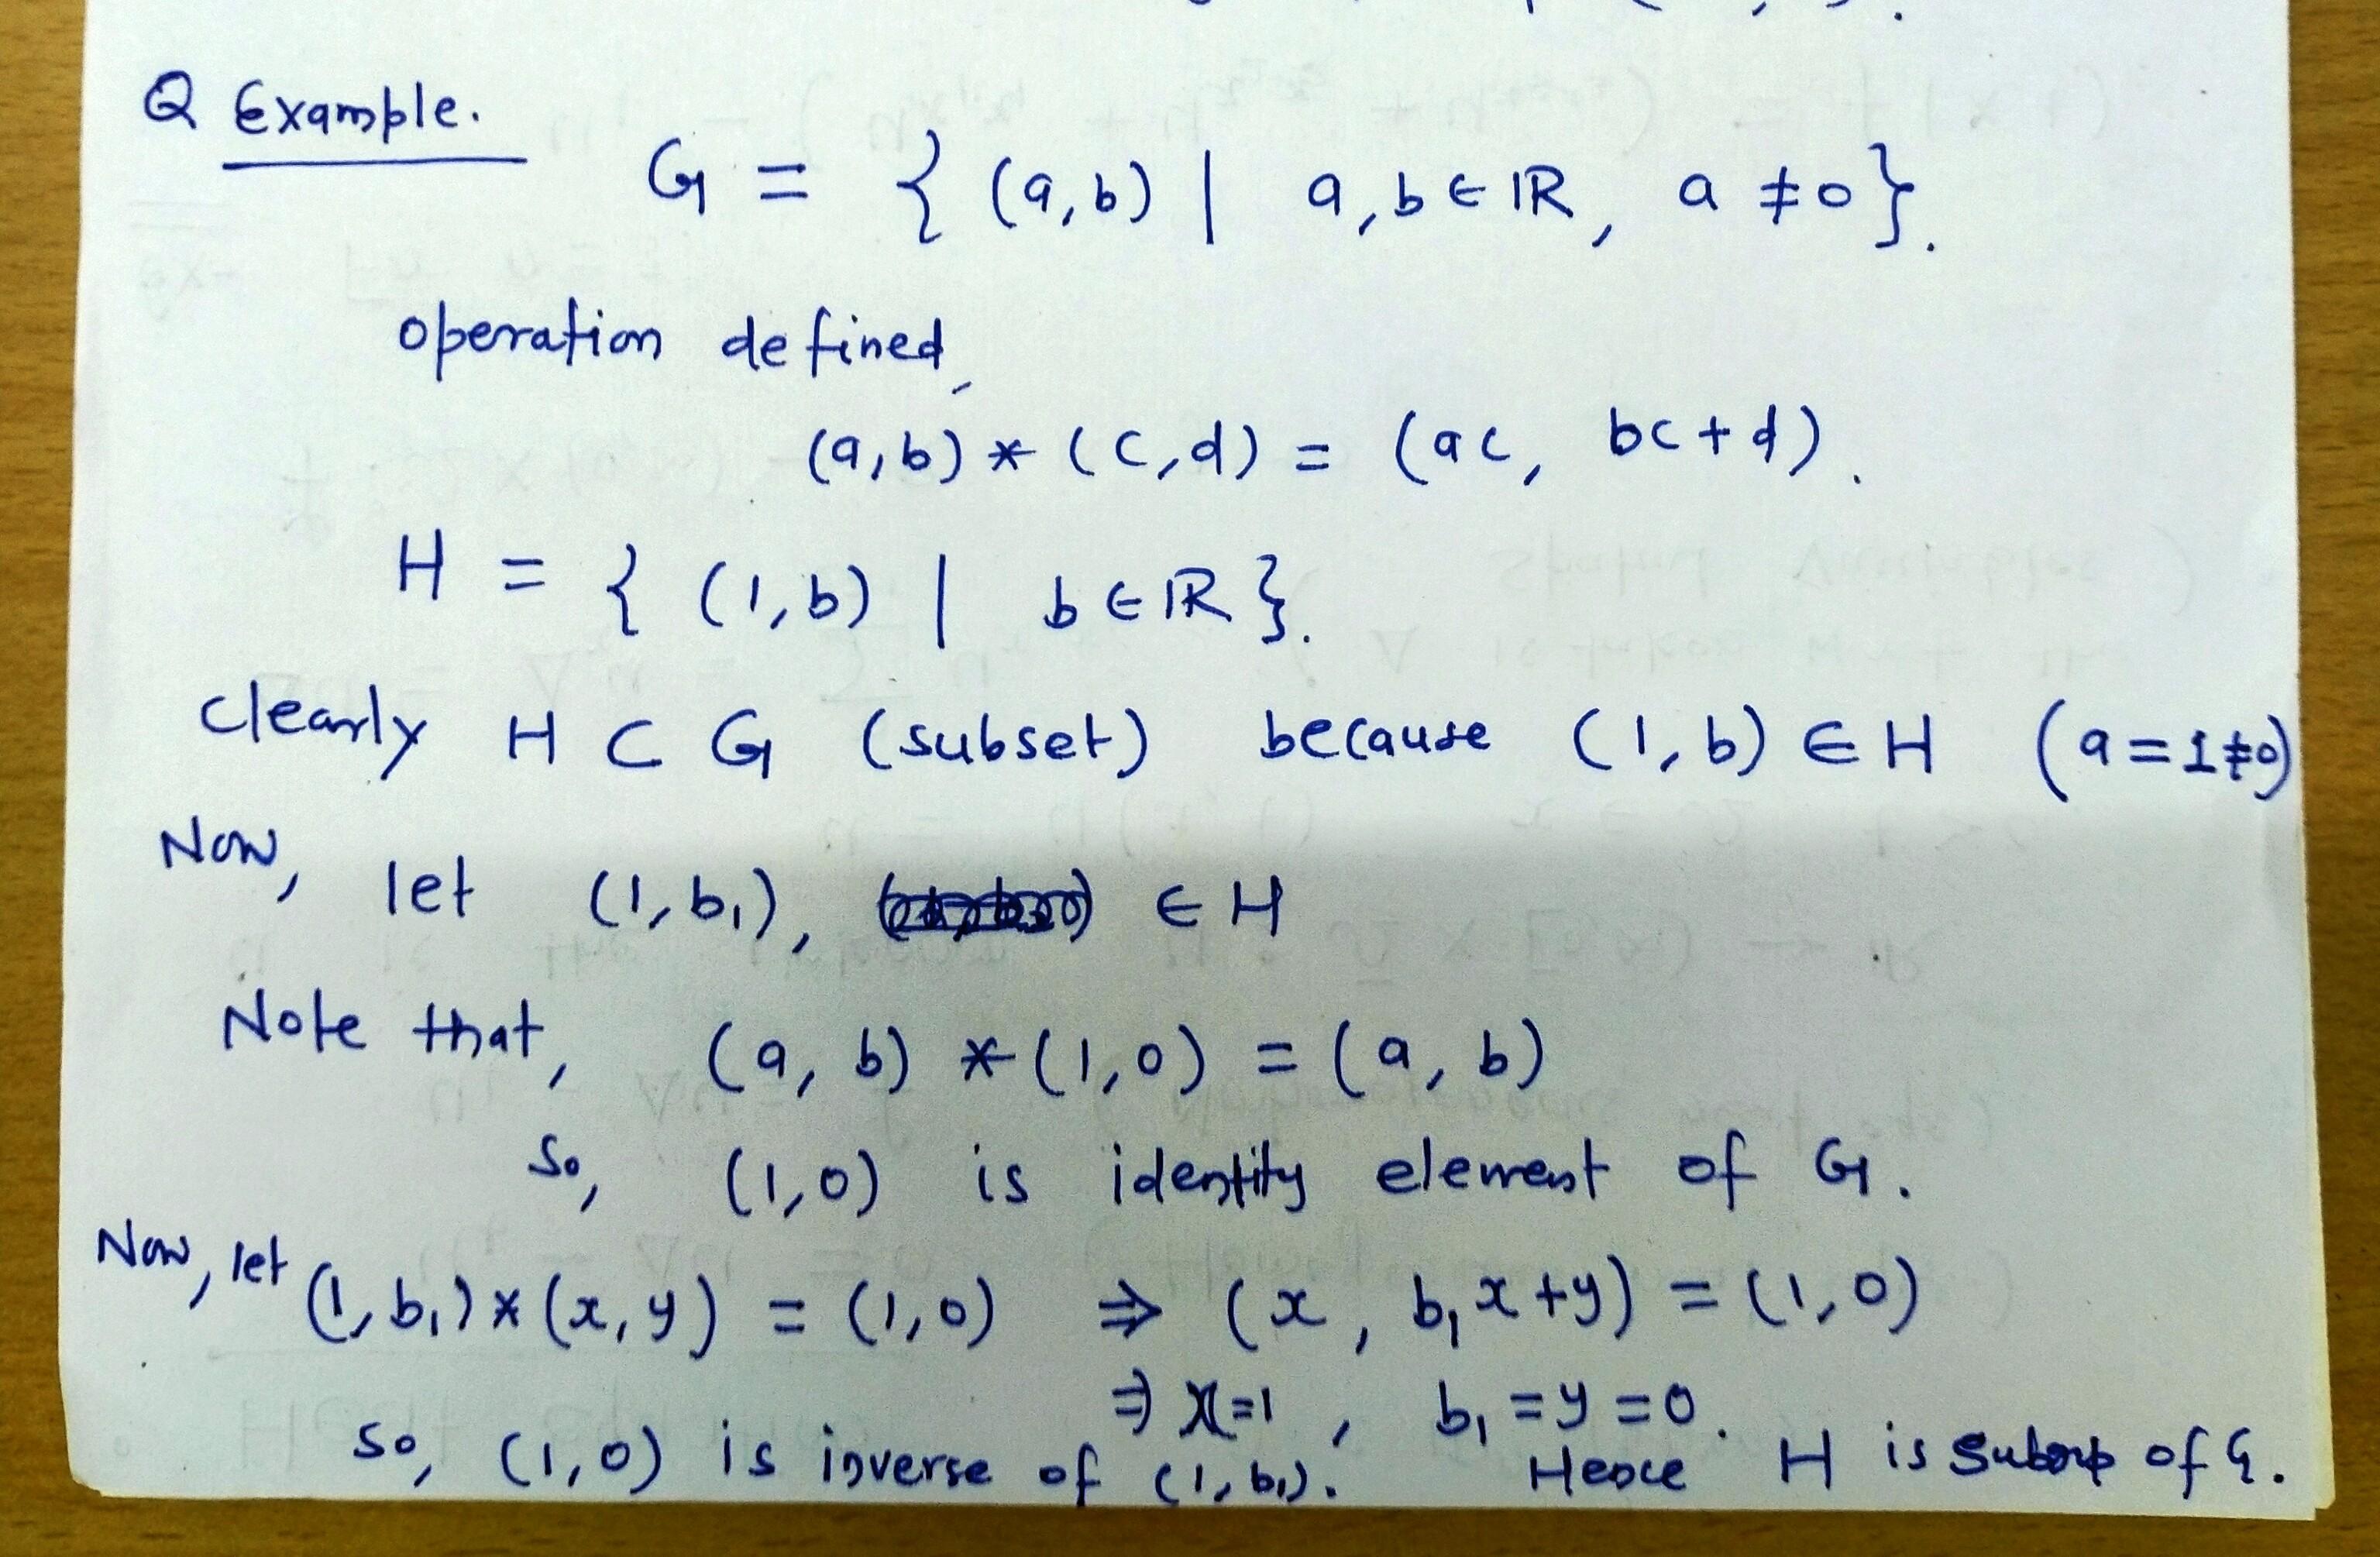 Q Example.
G = { (a,b) | a,b ∈ IR, a ≠ 0}.
operation defined,
(a,b) * (c,d) = (ac, bc+d).
H = { (1,b) | b ∈ IR }.
Clearly H ⊂ G (subset) because (1,b) ∈ H (a=1≠0)
Now, let (1,b₁), ∈ H
Note that, (a, b) * (1,0) = (a, b)
So, (1,0) is identity element of G.
Now, let (1,b₁) * (x,y) = (1,0) ⇒ (x, b₁x+y) = (1,0)
⇒ x=1, b₁=y=0.
So, (1,0) is inverse of (1,b₁). Hence H is of G.